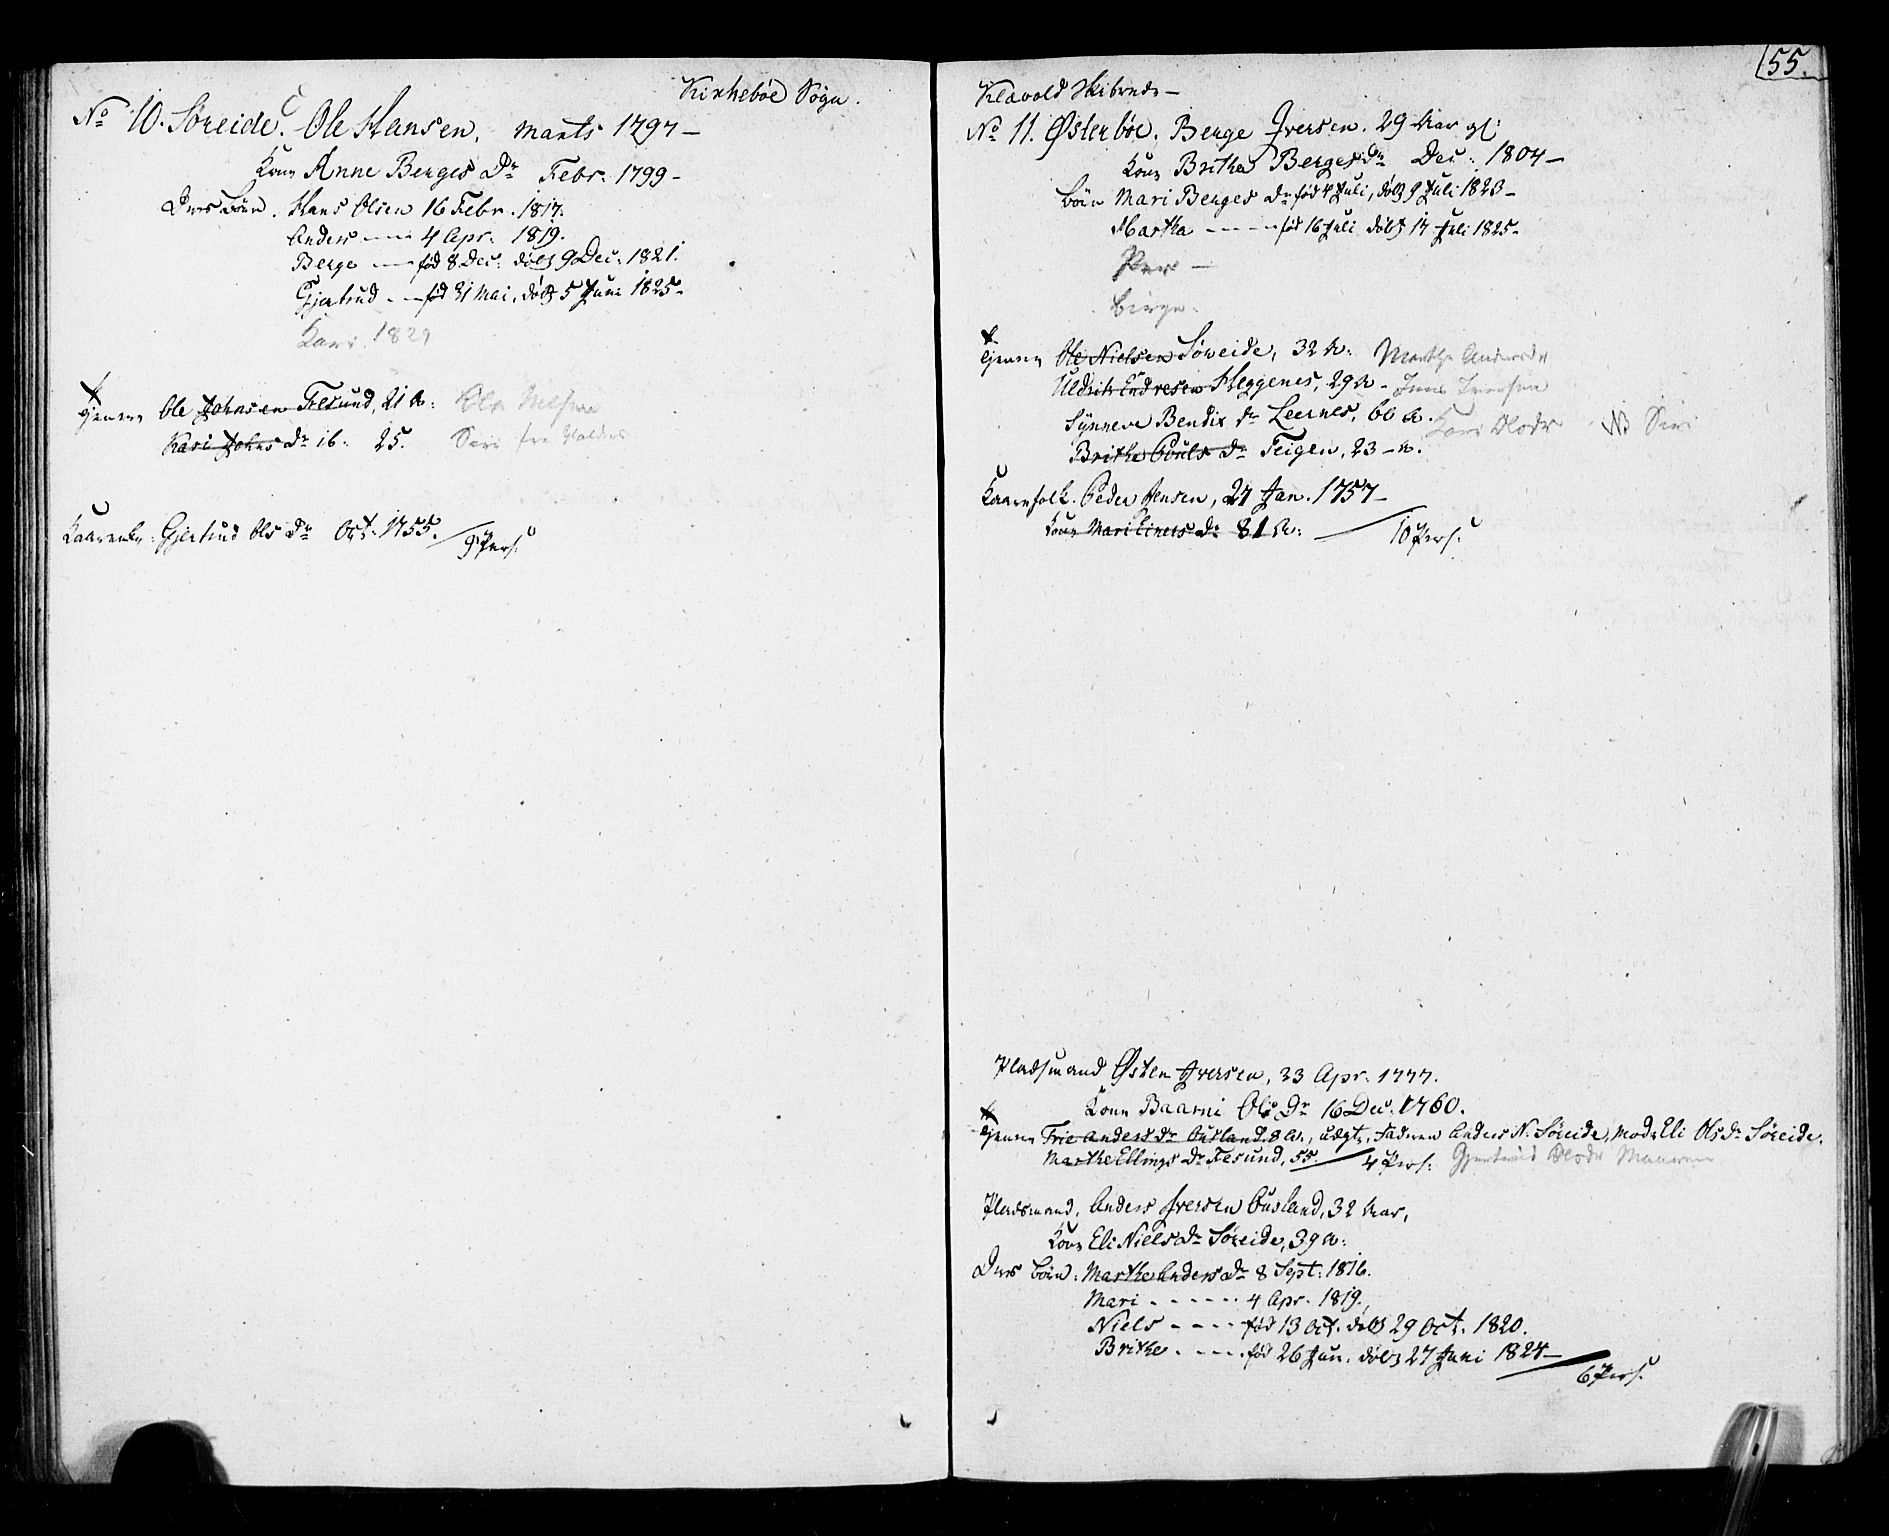 Kirkebøe Sogn.
No 10. Søreide. Ole Hansen, Marts 1797 –
Kone Anne Berges Dr Febr. 1799 –
Deres Børn. Hans Olsen 16 Febr. 1817.
Anders — 4 Apr. 1819.
Berge — fød 8 Dec: døbt 9 Dec: 1821.
Gjertrud - — fød 31 Mai, døbt 5 Juni 1825 –
Kari 1829
Tjenere Ole Johnsen Fresund, 21 A:
Kari Johns Dr ib: 25. Siri fra Valders
Kaarenke: Gjertrud Ols Dr Oct: 1755. 9 Pers:
55.
Klævold Skibrede –
No 11. Østerbøe. Berge Iversen. 29 Aar gl:
Kone Brithe Berges Dr Dec: 1804 –
Børn Mari Berges Dr fød 4 Juli, døbt 9 Juli 1823 –
Martha - - - - - fød 16 Juli døbt 17 Juli 1825 –
Per –
Birge.
Tjenere Ole Nielsen Søreide, 32 A: Marthe Andersdr
Uldrik Endresen Heggenes, 29 A – Jens Iversen
Synneve Bendix Dr Leernes, 60 A. Kari Olsdr NB Siri
Brithe Pouls Dr Feigen, 23 – A.
Kaarefolk. Peder Jensen, 27 Jan. 1757 –
Kone Mari Einers Dr 81 A: 10 Pers:
Pladsmand Østen Iversen, 23 Apr. 1777.
Kone Baarni Ols Dr 16 Dec. 1760.
Tjenere Frie Anders Dr Ousland, 8 A., udgt, Faderen Anders N. Søreide, Mod: Eli Ols Dr Søreide.
Marthe Ellings Dr Fresund, 55. 4 Pers: Gjertrud Olsdr Maaren
Pladsmand, Anders Iversen Ousland, 32 Aar,
Kone Eli Niels Dr Søreide, 39 A:
Deres Børn: Marthe Anders Dr 8 Sept: 1816.
Mari - - - - - - 4 Apr. 1819.
Niels - - - - fød 13 Oct. døbt 29 Oct. 1820.
Brithe - - - - fød 26 Jun. døbt 27 Juni 1824 –
6 Pers: